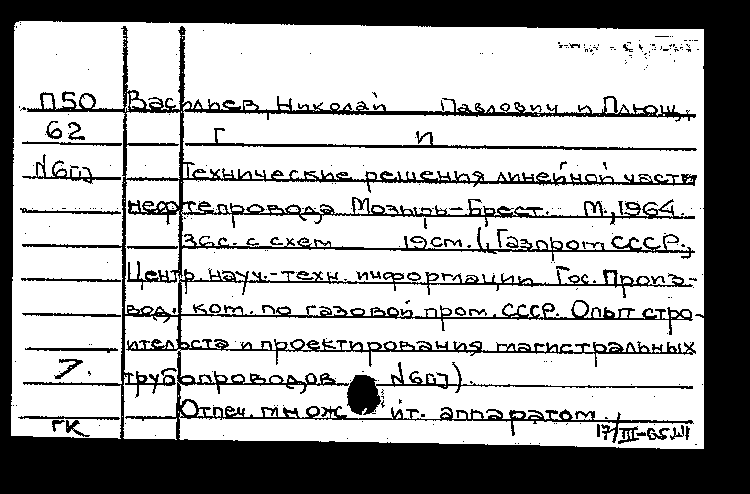 П50 Васильев, Николай Павлович и Плющ,
62 Г И
Технические решения линейной части
нефтепровода Мозырь-Брест. М., 1964.
36 с. с схем 19 см. (Газпром СССР.
Центр. науч.-техн. информации Гос. Произ-
вод. ком. по газовой пром. СССР. Опыт стро-
ительства и проектирования магистральных
трубопроводов
Отпеч. множит. аппаратом.
ГК 17/III-65